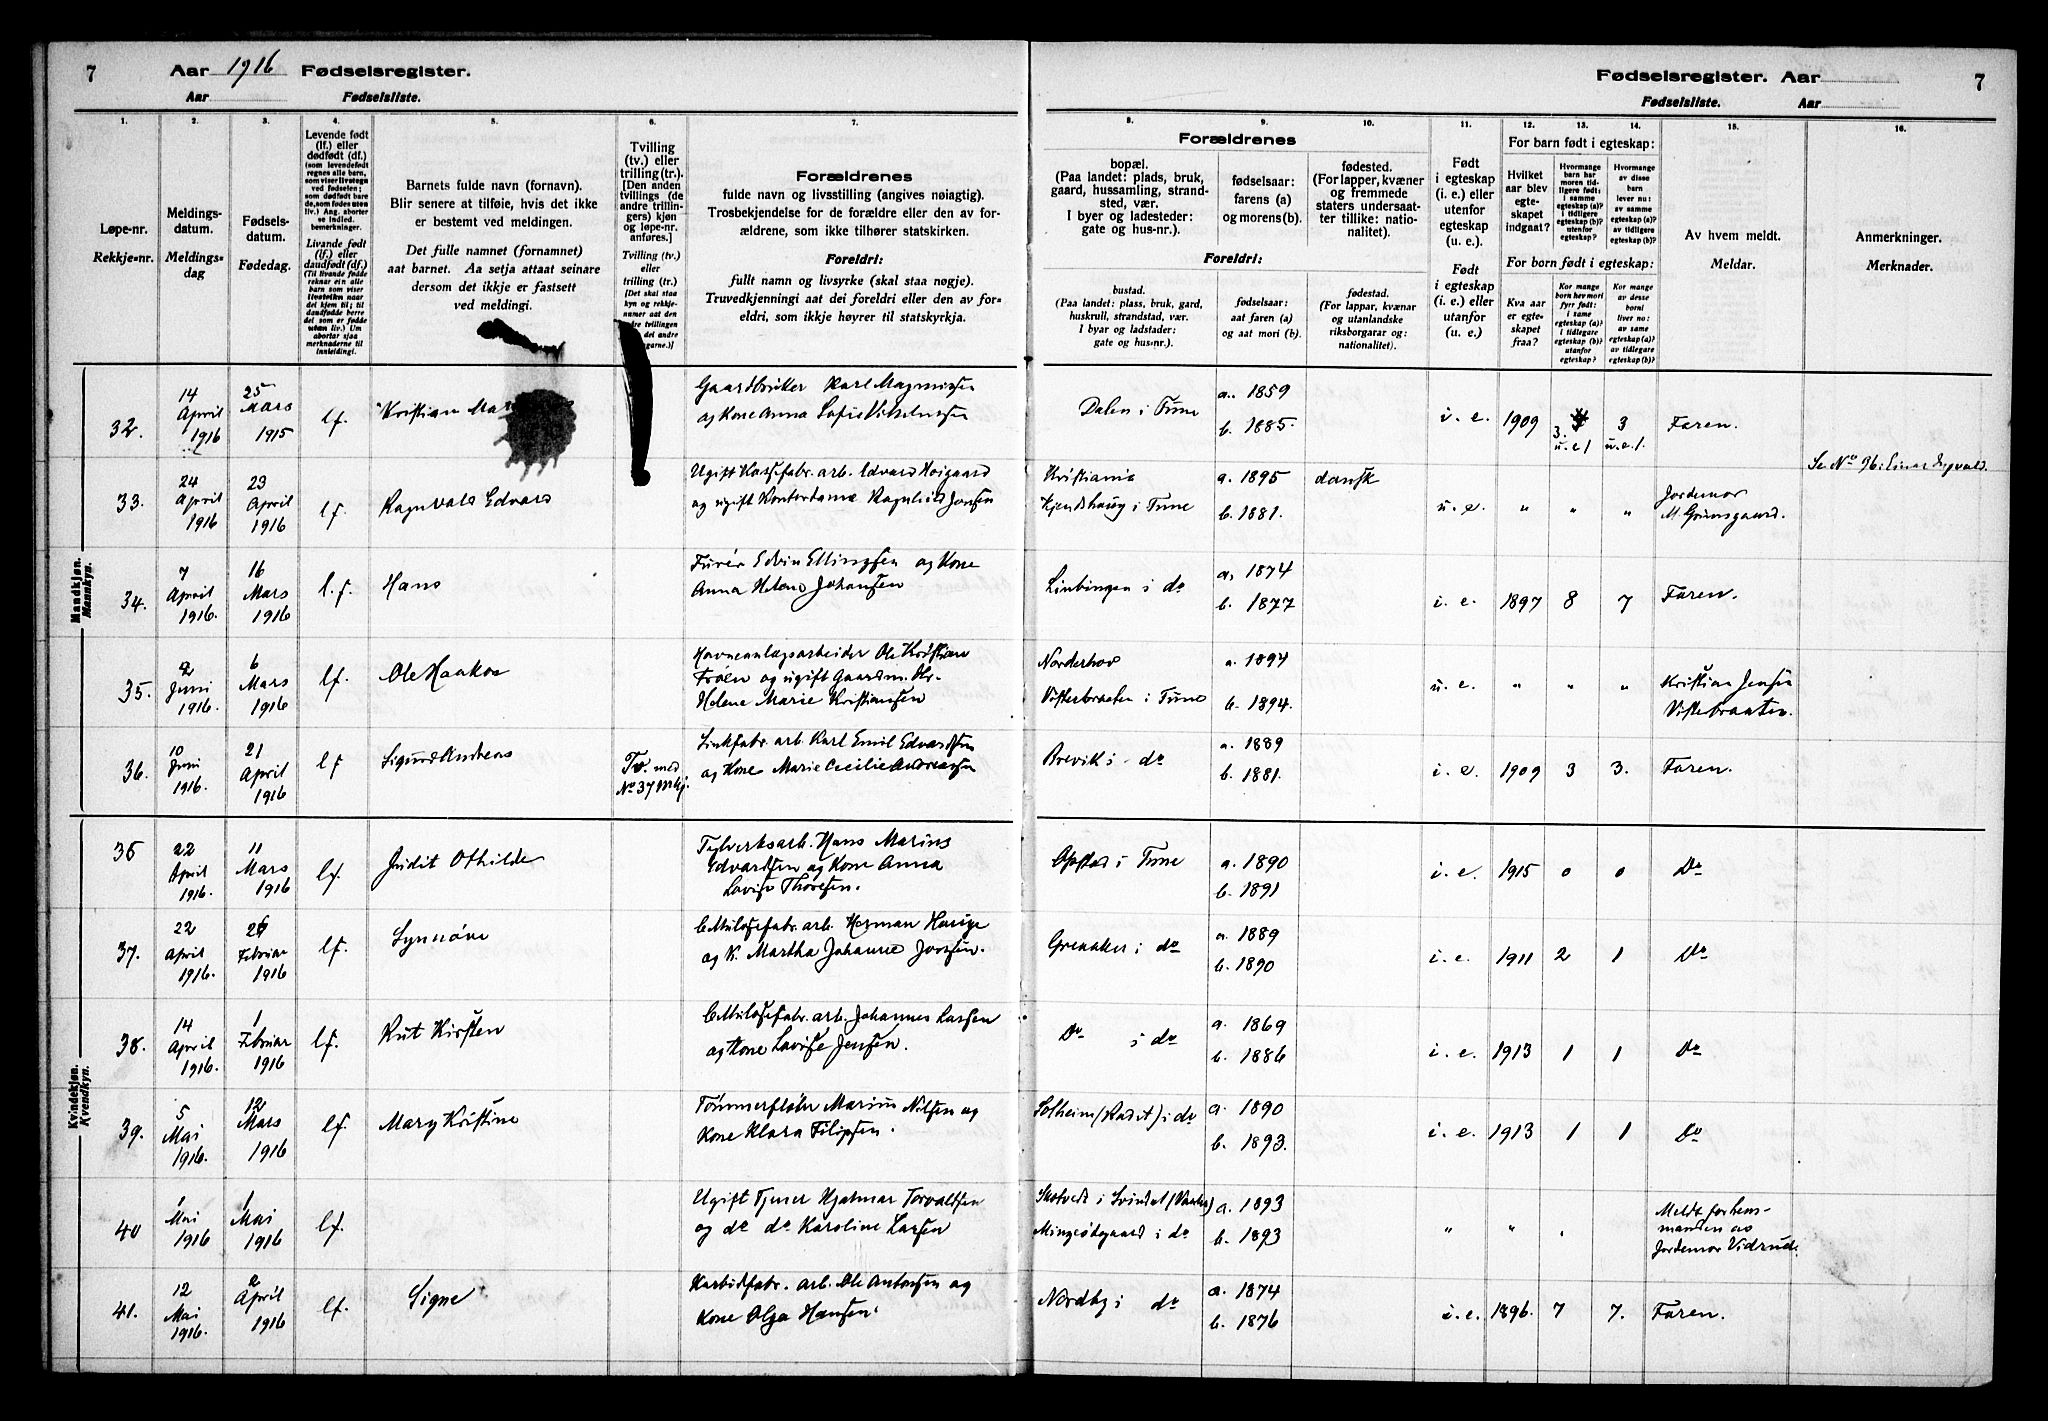 7 Aar 1916 Fødselsregister.
Aar Fødselsliste.
Fødselsregister. Aar 7
Fødselsliste. Aar
1. 2. 3. 4. 5. 6. 7. 8. 9. 10. 11. 12. 13. 14. 15. 16.
Løpe-nr.
Rekkje-nr.
Meldings-
datum.
Meldings-
dag
Fødsels-
datum.
Fødedag.
Levende født
(lf.) eller
dødfødt (df.)
(som levendefødt
regnes alle barn,
som viser livstegn
ved fødselen;
som dødfødt bare
de, som fødes uten
liv.) Ang. aborter
se indled.
bemerkninger.
Livande født
(lf.) eller
daudfødt (df.)
Barnets fulde navn (fornavn).
Blir senere at tilføie, hvis det ikke
er bestemt ved meldingen.
Det fulle namnet (fornamnet)
aat barnet. Aa setja attaat seinare
dersom det ikkje er fastsett
ved meldingi.
Tvilling
(tv.) eller
trilling (tr.).
[Den anden
tvillings (de
andre trillin-
gers) kjøn
og løpe-nr.
anføres.]
Tvilling (tv.)
eller
trilling (tr.)
Forældrenes
fulde navn og livsstilling (angives nøiagtig).
Trosbekjendelse for de forældre eller den av for-
ældrene, som ikke tilhører statskirken.
Foreldri:
fullt namn og livsyrke (skal staa nøgje).
Truvedkjenningi aat dei foreldri eller den av for-
eldri, som ikkje høyrer til statskyrkja.
Forældrenes
bopæl.
(Paa landet: plads, bruk,
gaard, hussamling, strand-
sted, vær.
I byer og ladesteder:
gate og hus-nr.).
fødselsaar:
farens (a)
og morens (b).
fødested.
(For lapper, kvæner
og fremmede
staters undersaat-
ter tillike: natio-
nalitet).
Foreldri:
bustad.
(Paa landet: plass, bruk, gard,
huskrull, strandstad, vær.
I byar og ladstader:
gate og hus-nr.).
fødselsaar:
aat faren (a)
og aat mori (b).
fødestad.
(For lappar, kvænar
og utanlandske
riksborgarar og:
nationalitet).
Født
i egteskap
(i. e.) eller
utenfor
egteskap
(u. e.).
Født
i egteskap
(i. e.) eller
utanfor
egteskap
(u. e.).
For barn født i egteskap:
Hvilket
aar blev
egte-
skapet
indgaat?
Hvormange
barn har
moren tid-
ligere født:
i samme
egteskap (a)?
i tidligere
egteskap (b)?
utenfor
egteskap?
Hvormange
av disse
barn
lever nu:
av samme
egteskap (a)?
av tidligere
egteskap (b)?
For born født i egteskap:
Kva aar
er egte-
skapet
fraa?
Av hvem meldt.
Meldar.
Anmerkninger.
Merknader.
Mandkjøn.
Mannkyn.
32. 14 April 1916 25 Mars 1915 lf. Kristian
Gaardbruker Karl Magnussen
og Kone Anna Sofie Vilhelmsen
Dalen i Tune a. 1859 b. 1885. i. e. 1909 3. u.e1 3 u.e.1. Faren.
Se No 96: Einar Sigvald.
33. 24 April 1916 23 April 1916 lf. Ragnvald Edvard
Ugift arb. Edvard Høigaard
og ugift Kontordame Ragnhild Jensen
Kristiania
Kjendshaug i Tune a. 1895 b. 1881. dansk u. e. " " " Jordemor
M Grimsgaard.
34. 7 April 1916. 16 Mars 1916 l.f. Hans
Furér Edvin Ellingsen og Kone
Anna Helene Johansen
i do a. 1874 b. 1877 i. e. 1897 8 7 Faren.
35. 2 Juni 1916. 6 Mars 1916 lf. Ole Haakon
Havneanlægsarbeider Ole Kristian
Trøen og ugift Gaardm. dtr.
Helene Marie Kristiansen
Norderhov
Visterbraaten i Tune a. 1894 b. 1894. u. e. " " " Kristian Jensen
Visterbraaten.
36. 10 Juni 1916. 21 April 1916 lf Sigurd Andreas Tv. med
No 37 Mkj.
Sinkfabr. arb. Karl Emil Edvardsen
og Kone Marie Cecilie Andreassen
Brevik i do a. 1889 b. 1881. i. e. 1909 3 3. Faren.
Kvindekjøn.
Kvendkyn.
36 22 April 1916. 11 Mars 1916 lf. Judit Othilde
Teglverksarb. Hans Marius
Edvardsen og Kone Anna
Lovise Thoresen.
Opstad i Tune a. 1890 b. 1891 i. e. 1915 0 0 Do
37. 22 April 1916. Februar 1916 lf. Synnöve
Cellulosefabr. arb. Herman
og K. Martha Johanne
Greaaker i do a. 1889 b. 1890 i. e. 1911 2 1 Do
38. 14 April 1916. 1 Februar 1916 lf. Rut Kirsten
Cellulosefabr. arb. Johannes Larsen
og Kone Lovise Jensen.
Do i do a. 1869 b. 1886 i. e. 1913 1 1 Do
39. 5 Mai 1916. 12 Mars 1916 lf. Mary Kristine
Tømmerfløter Marius Nilsen og
Kone Klara Filipsen.
Solheim (Radet) i do a. 1890 b. 1893. i. e. 1913 1 1 Do
40 1 Mai 1916 1 Mai 1916 lf.
Ugift Tjener Hjalmar Torvaldsen
og do do Karoline Larsen
i Svindal
Mingeødegaard i do a. 1893 b. 1893 " " Meldt for lens-
manden av
Jordemor Vidrud.
41. 12 Mai 1916. 2 April 1916 lf. Signe
Karbidfabr. arb. Ole Antonsen og
Kone Olga Hansen.
Nordby i do a. 1874 b. 1876 i. e. 1896. 7 7. Faren.